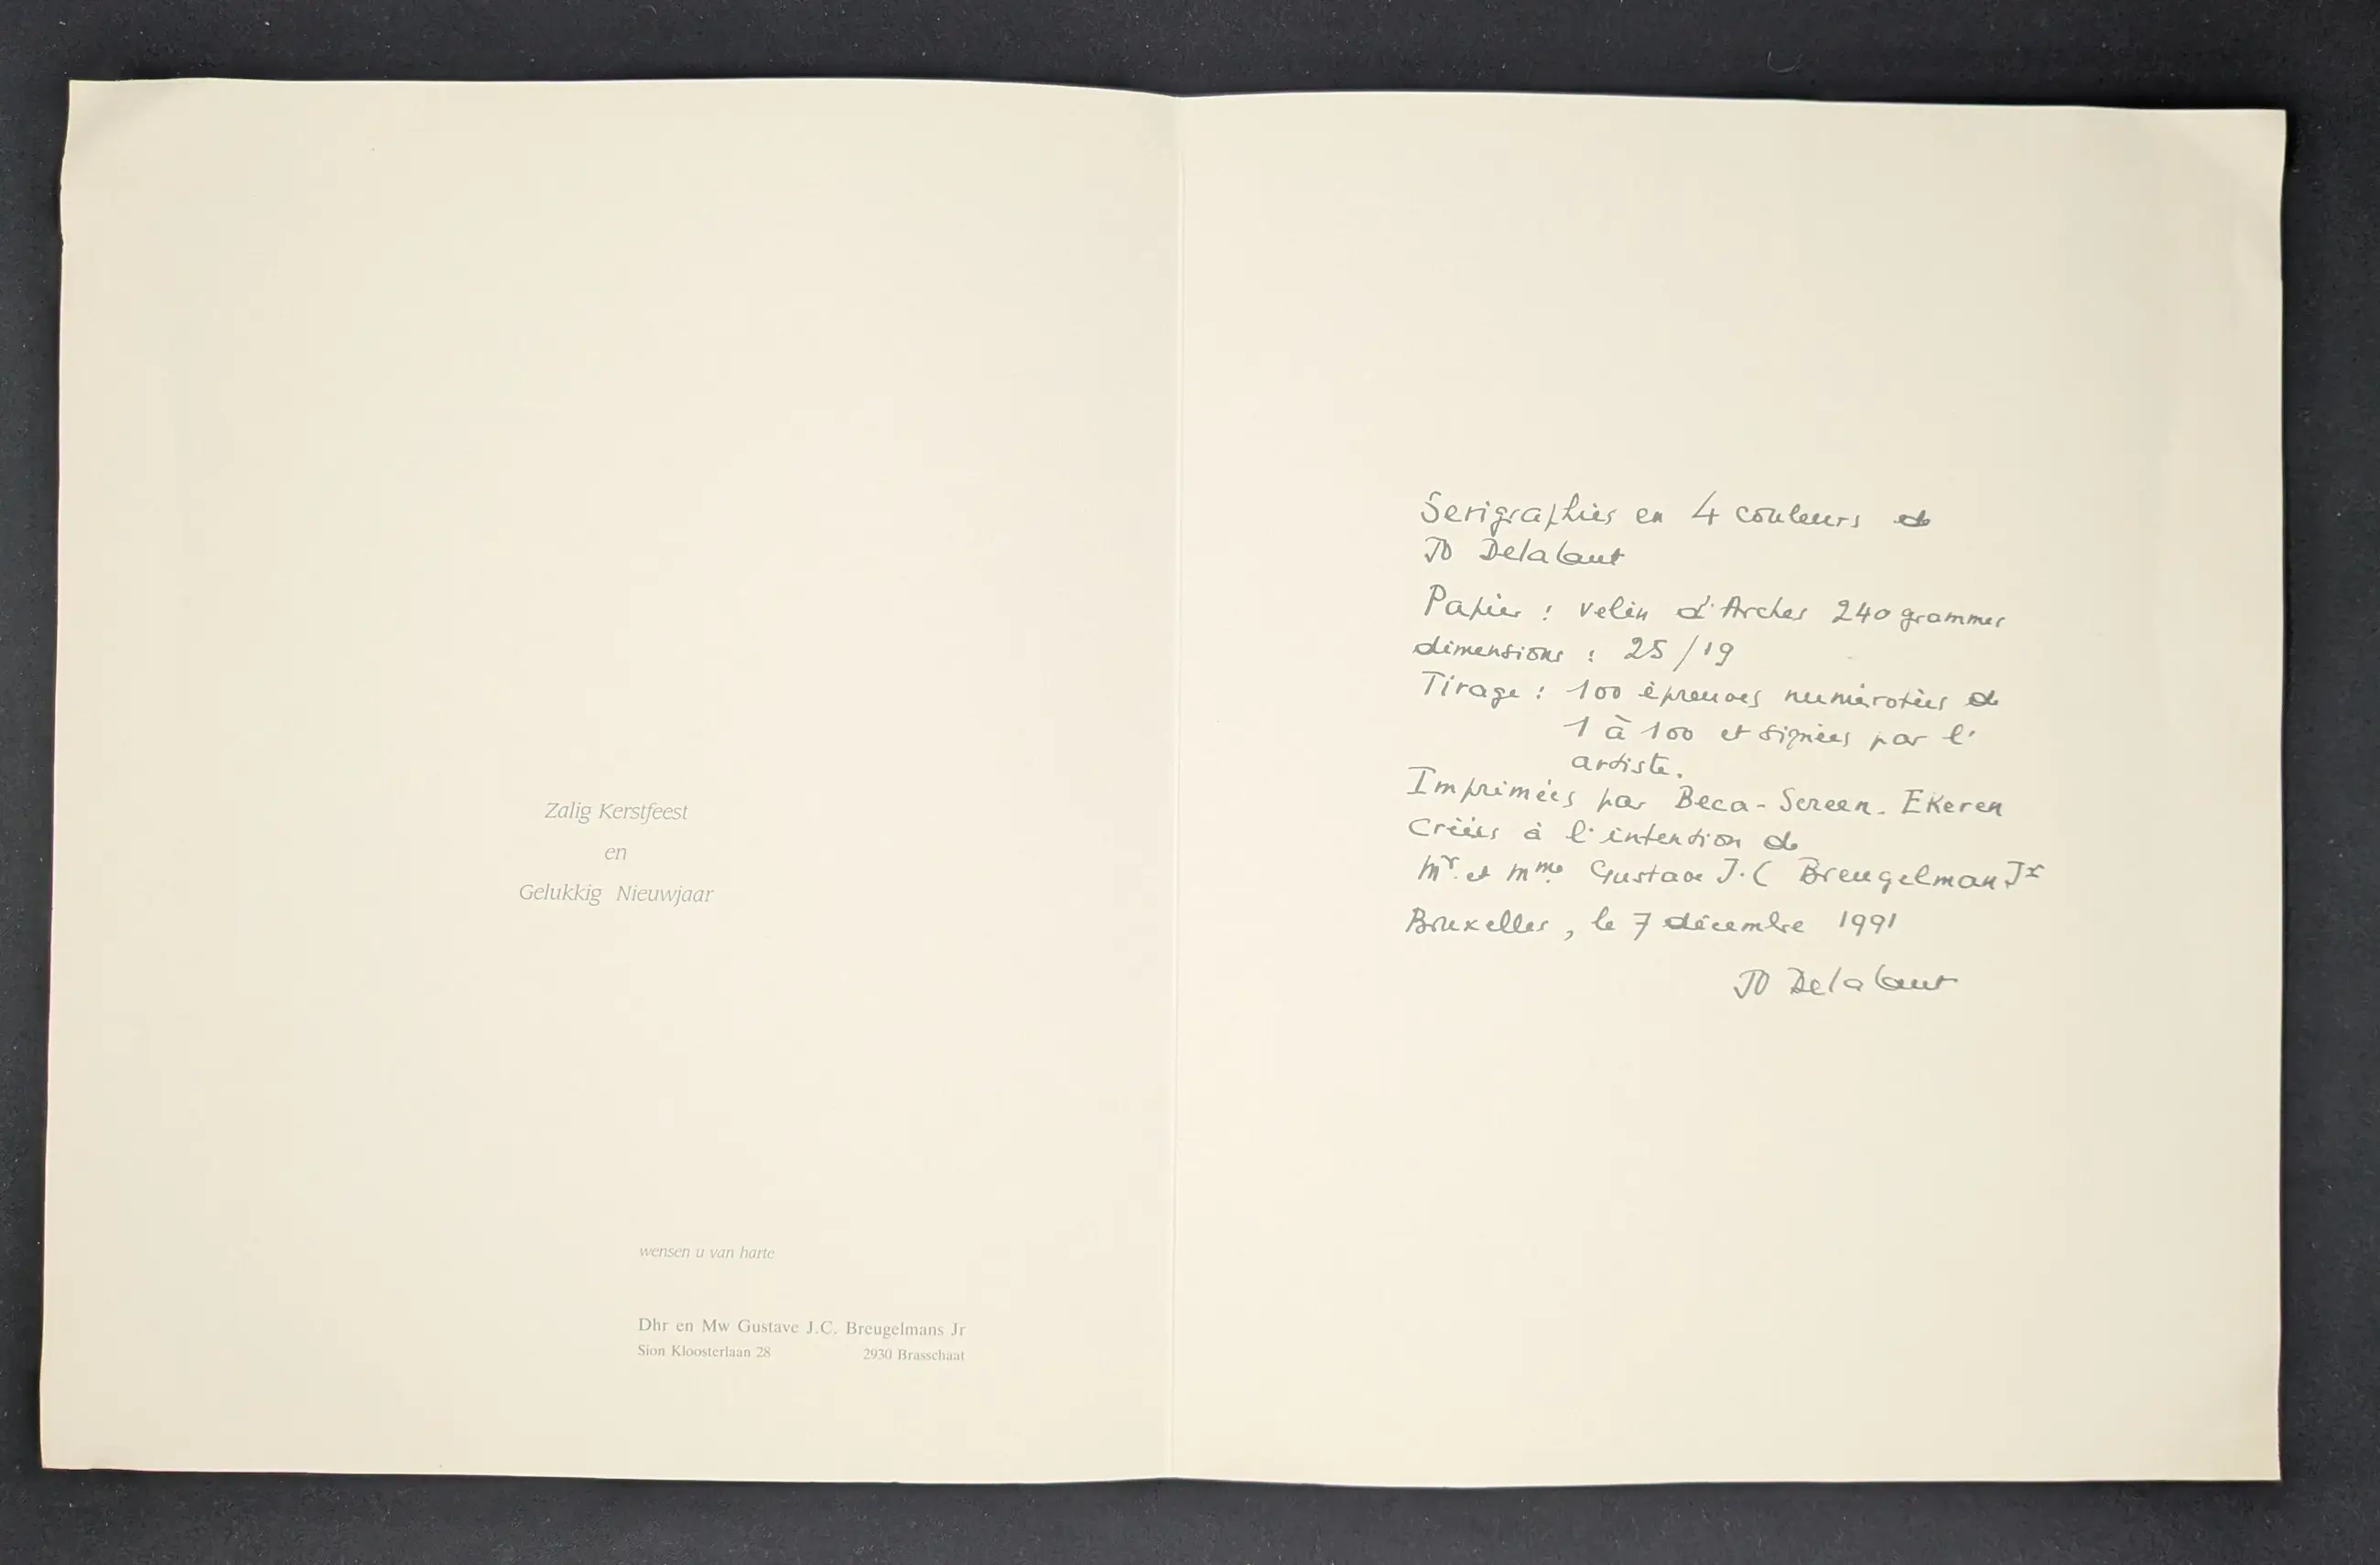 Zalig Kerstfeest
en
Gelukkig Nieuwjaar
wensen u van harte
Dhr en Mw Gustave J.C. Breugelmans Jr
Sion Kloosterlaan 28 2930 Brasschaat
Serigraphies en 4 couleurs de
JO Delahaut
Papier : velin d'Arches 240 grammes
dimensions : 25/19
Tirage : 100 épreuves numérotées de
1 à 100 et signées par l'
artiste.
Imprimées par Beca-Screen. Ekeren
Créées à l'intention de
Mr. et Mme. Gustave J.C Breugelman Jr
Bruxelles, le 7 décembre 1991
JO Delahaut